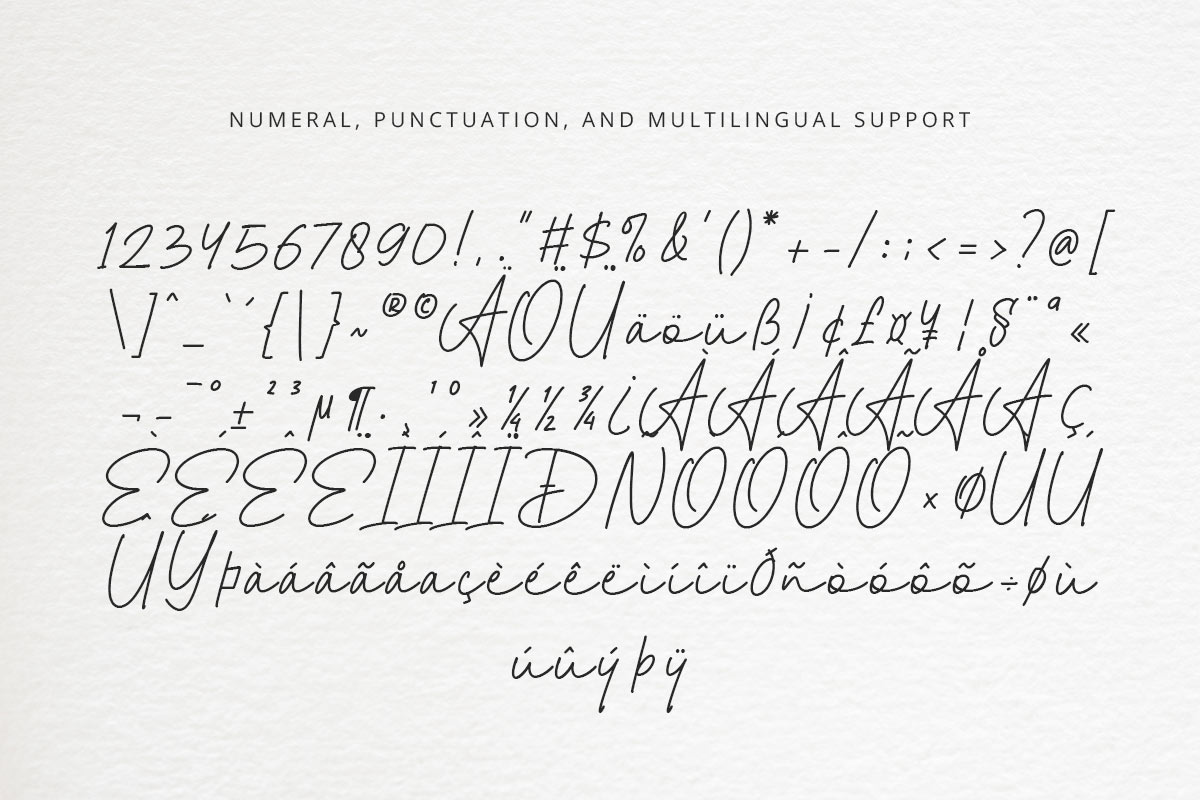 NUMERAL, PUNCTUATION, AND MULTILINGUAL SUPPORT
1234567890!,."#$%&'()*+-/:;<=>?@[
\]^_`´{|}~®©ÄÖÜäöüß¡¢£¤¥¦§¨ª«
¬-¯°±²³µ¶·¸¹º»¼½¾¿ÀÁÂÃÅAÇ
ÈÉÊËÌÍÎÏÐÑÒÓÔÕ×ØÙÚ
ÛÝÞàáâãåaçèéêëìíîïðñòóôõ÷øù
úûýþÿ